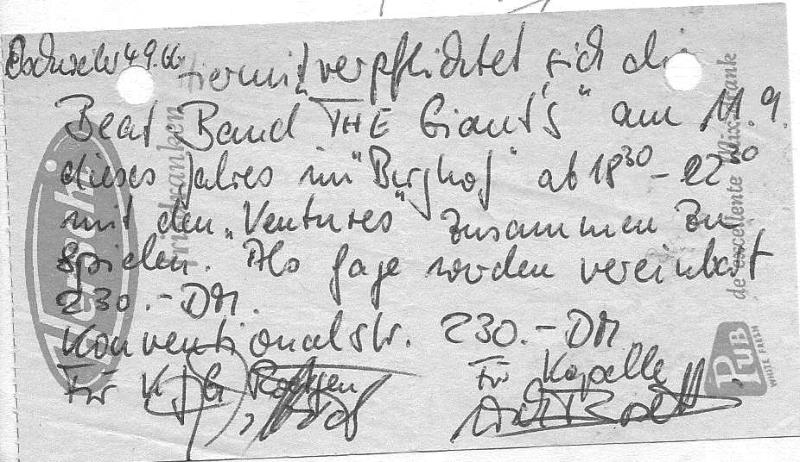 4.9.66
Hiermit verpflichtet sich die
Beat Band „THE Giant's" am 11.9.
dieses Jahres im "Burghof" ab 18³⁰ - 22³⁰
mit den „Ventures" zusammen zu
spielen. Als Gage werden vereinbart
230.- DM.
Konventionalstr. 230.- DM
Für KJG
Für Kapelle
Frischranken
de excellente Mixdrank
PUB
WHITE FRESH